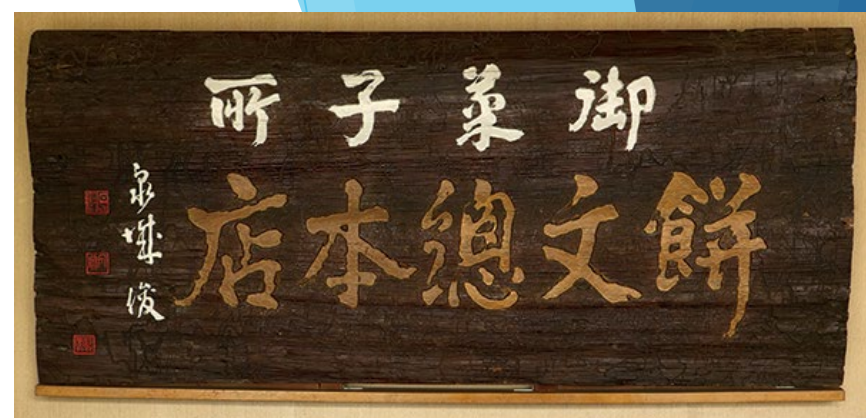 御菓子所
餅文總本店
泉城俊